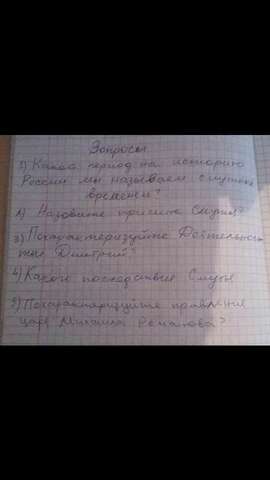 Вопросы
1) Какой период на историю
России мы называем смутным
временем?
2) Назовите причины Смуты?
3) Похарактеризуйте Деятельность
Дмитрий?
4) Каково последствие Смуты
5) Похарактиризуйте правление
царя Михаила Романова?